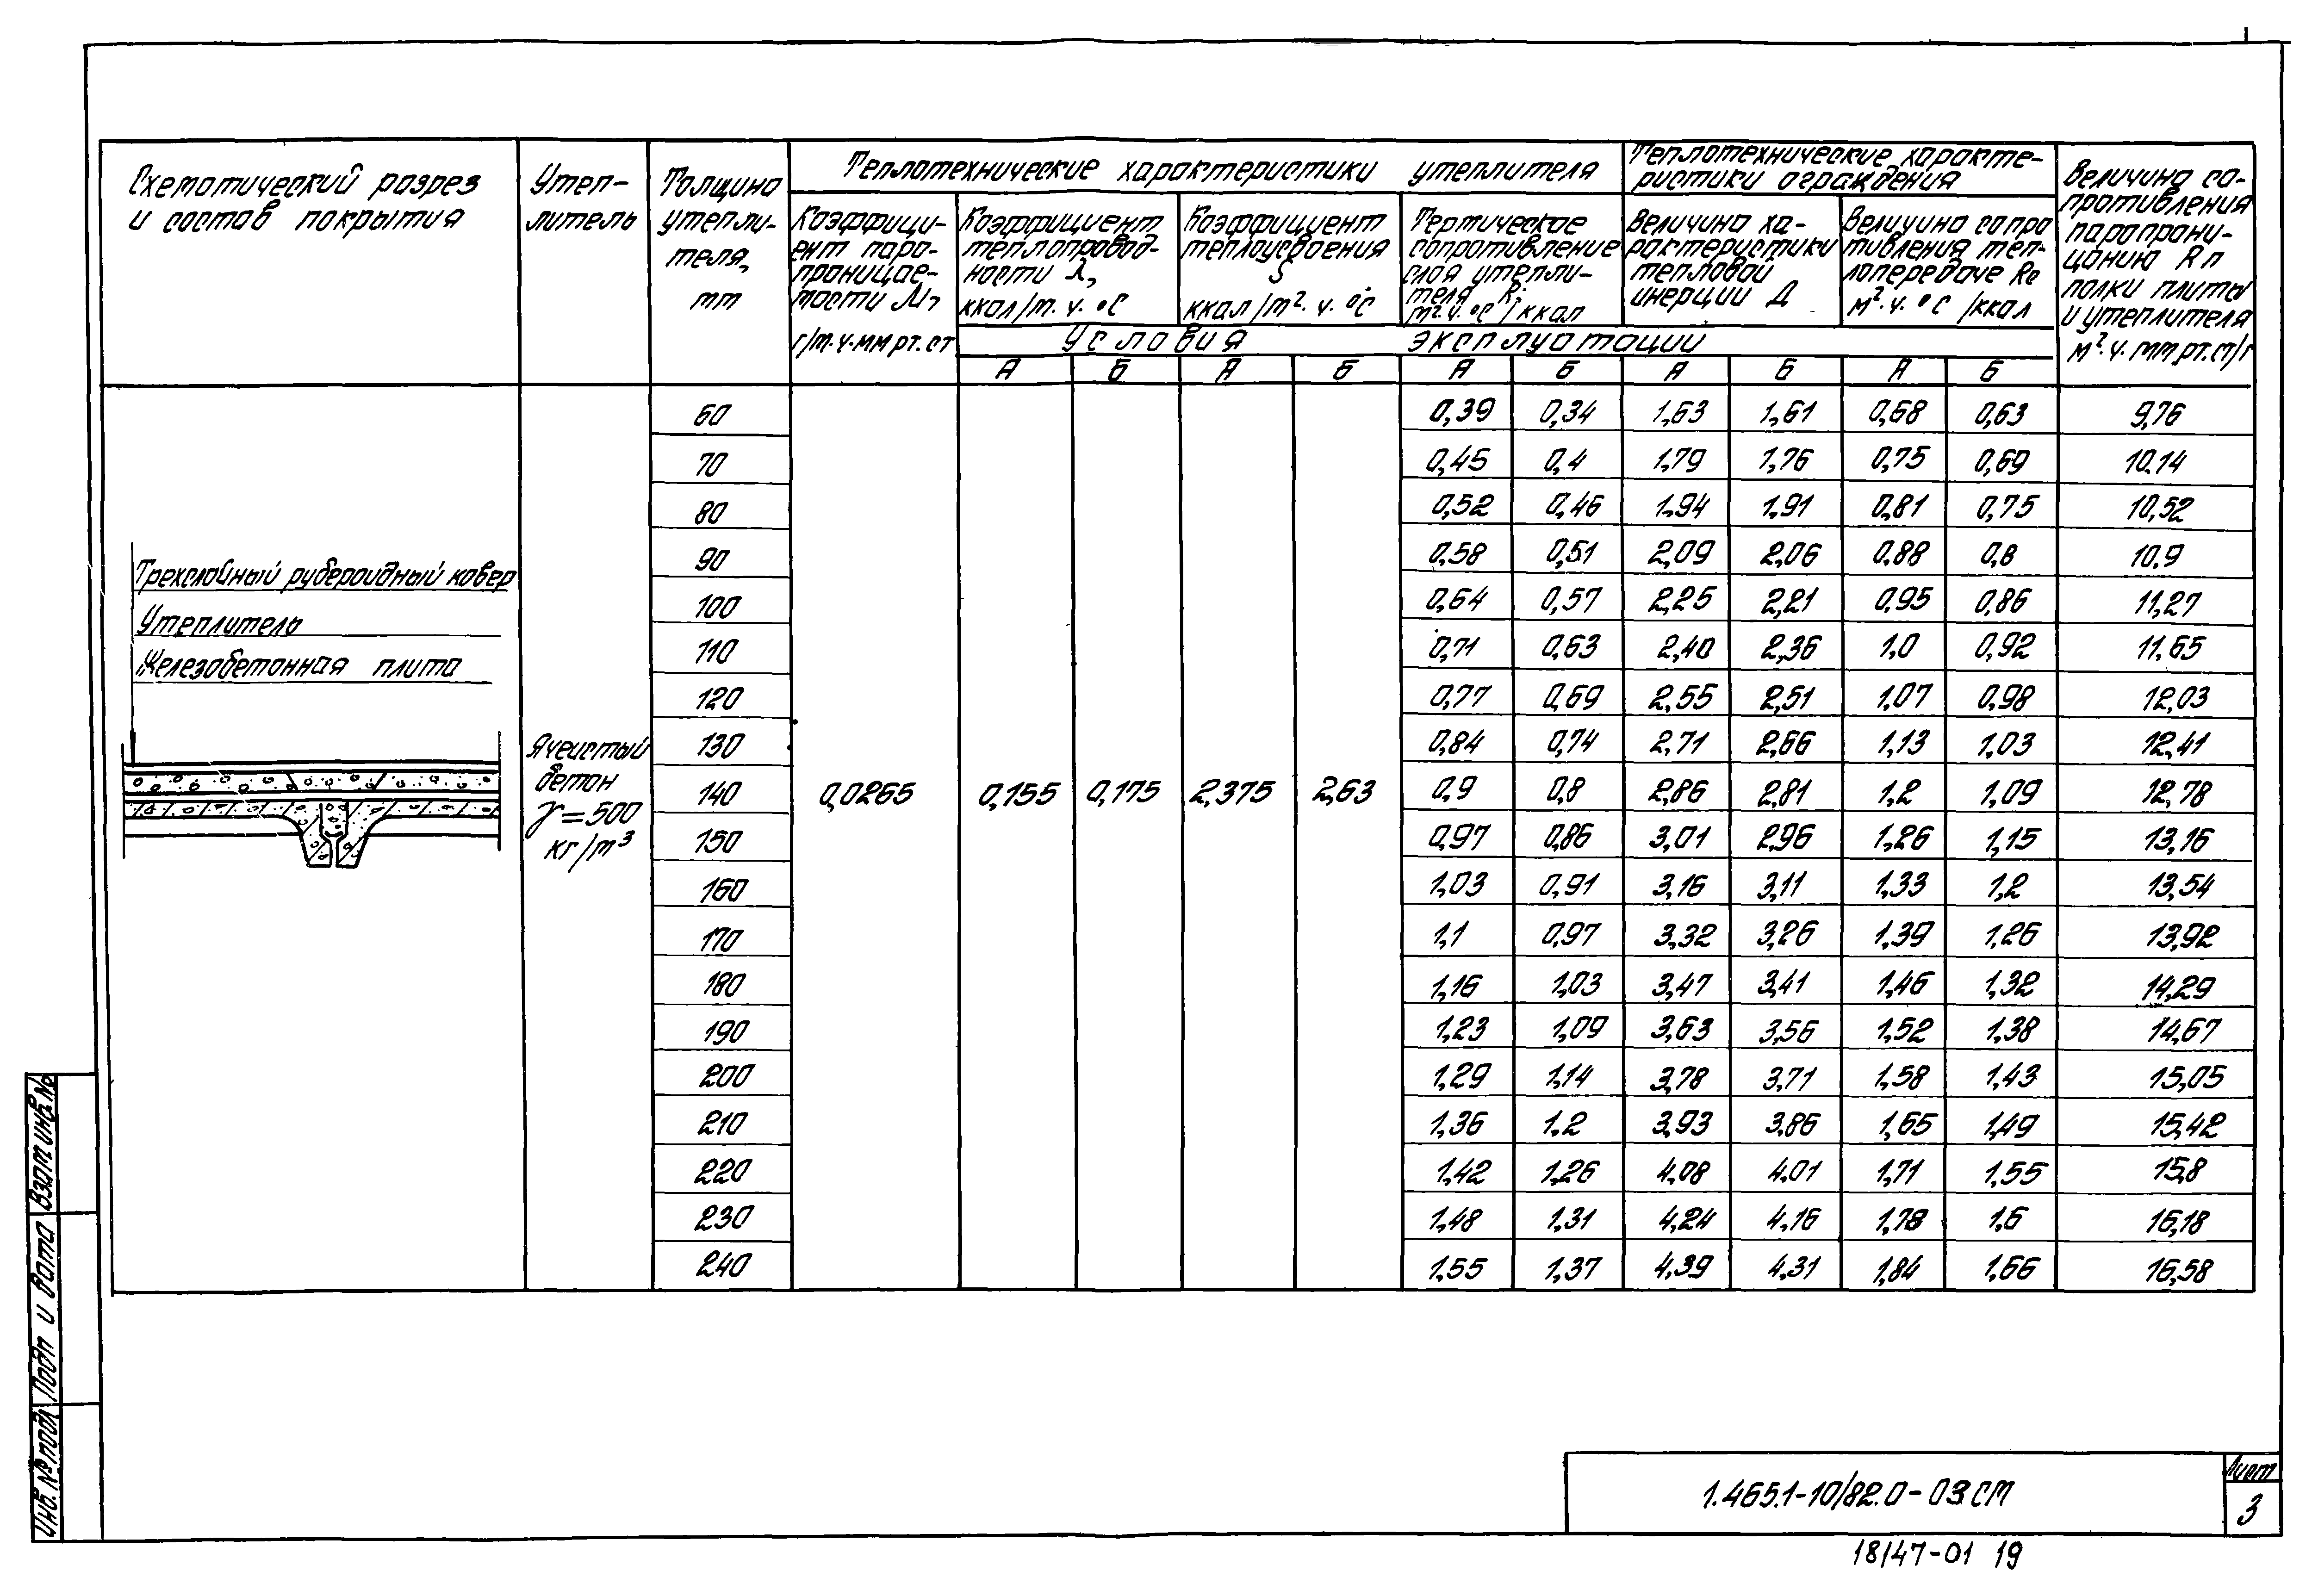 Схематический разрез
и состав покрытия
Утеп-
литель
Толщина
утепли-
теля,
mm
Теплотехнические характеристики утеплителя
Теплотехнические характе-
ристики ограждения
Величина со-
противления
паропрони-
цанию Rп
полки плиты
и утеплителя
м².ч.mm рт.ст/г
Коэффици-
ент паро-
проницае-
мости М,
г/m.ч.мм рт.ст
Коэффициент
теплопровод-
ности λ,
ккал/m.ч.°С
Коэффициент
теплоусвоения
S
ккал/m².ч.°С
Термическое
сопротивление
слоя утепли-
теля R;
m².ч.°С/ккал
Величина ха-
рактеристики
тепловой
инерции Д
Величина сопро
тивления теп-
лопередаче Rо
м².ч.°С/ккал
Условия эксплуатации
А Б А Б А Б А Б А Б
Трехслойный рубероидный ковер
Утеплитель
Железобетонная плита
Ячеистый
бетон
γ=500
кг/m³
0,0265 0,155 0,175 2,375 2,63
60 0,39 0,34 1,63 1,61 0,68 0,63 9,76
70 0,45 0,4 1,79 1,76 0,75 0,69 10.14
80 0,52 0,46 1,94 1,91 0,81 0,75 10,52
90 0,58 0,51 2,09 2,06 0,88 0,8 10,9
100 0,64 0,57 2,25 2,21 0,95 0,86 11,27
110 0,71 0,63 2,40 2,36 1,0 0,92 11,65
120 0,77 0,69 2,55 2,51 1,07 0,98 12,03
130 0,84 0,74 2,71 2,66 1,13 1,03 12,41
140 0,9 0,8 2,86 2,81 1,2 1,09 12,78
150 0,97 0,86 3,01 2,96 1,26 1,15 13,16
160 1,03 0,91 3,16 3,11 1,33 1,2 13,54
170 1,1 0,97 3,32 3,26 1,39 1,26 13,92
180 1,16 1,03 3,47 3,41 1,46 1,32 14,29
190 1,23 1,09 3,63 3,56 1,52 1,38 14,67
200 1,29 1,14 3,78 3,71 1,58 1,43 15,05
210 1,36 1.2 3,93 3,86 1,65 1,49 15,42
220 1,42 1,26 4.08 4.01 1,71 1,55 15,8
230 1,48 1,31 4,24 4,16 1,78 1,6 16,18
240 1,55 1,37 4,39 4,31 1,84 1,66 16,58
Взам инв. №
Подп и дата
Инв. № подл
1.465.1-10/82.0-03СМ
Лист
3
18147-01 19